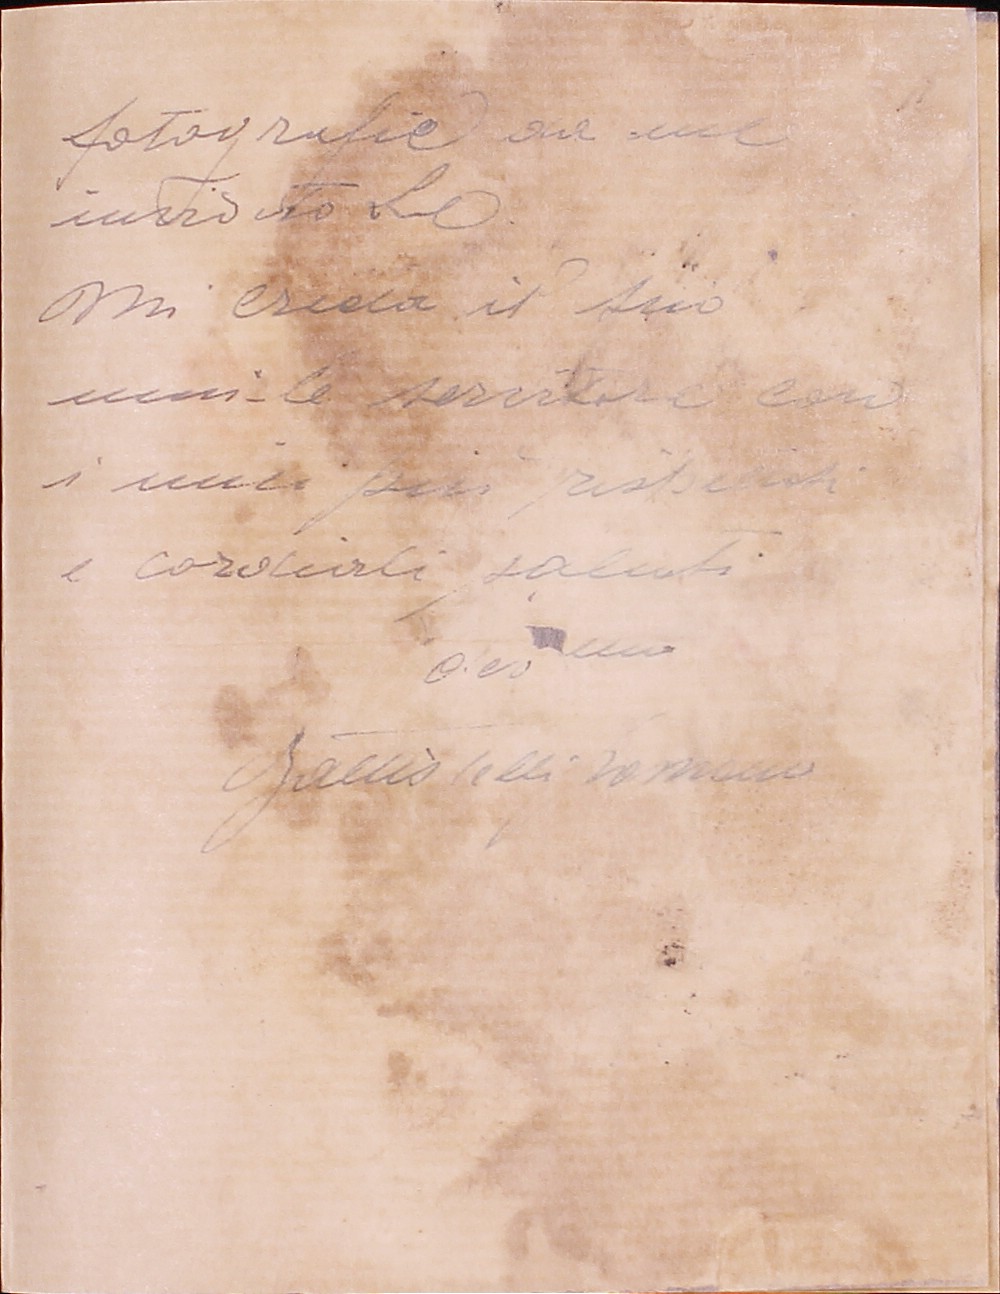 fotografie da me
inviato Le.
Mi creda il suo
umile servitore con
i miei più rispettosi
e cordiali saluti
Battistelli Romano